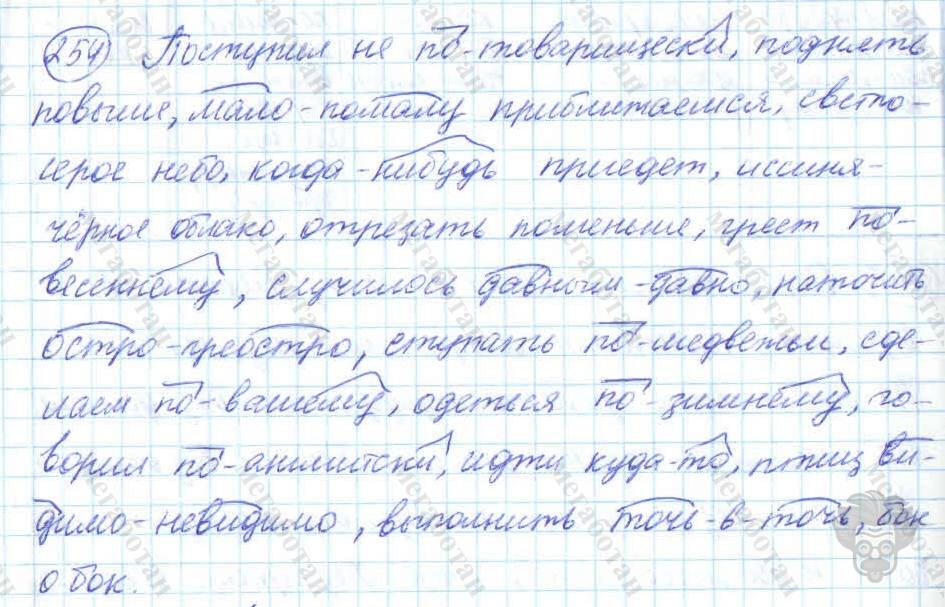 254) Поступил не по-товарищески, поднять
повыше, мало-помалу приближаемся, светло-
серое небо, когда-нибудь приедет, иссиня-
чёрное облако, отрезать поменьше, греет по-
весеннему, случилось давным-давно, наточить
остро-преостро, ступать по-медвежьи, сде-
лаем по-вашему, одеться по-зимнему, го-
ворил по-английски, идти куда-то, птиц ви-
димо-невидимо, выполнить точь-в-точь, бок
о бок.
мегаботан